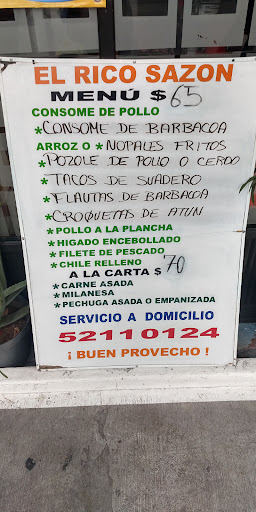 EL RICO SAZON
MENÚ $65
CONSOME DE POLLO
*CONSOME DE BARBACOA
ARROZ O *NOPALES FRITOS
*POZOLE DE POLLO O CERDO
*TACOS DE SUADERO
*FLAUTAS DE BARBACOA
*CROQUETAS DE ATUN
*POLLO A LA PLANCHA
*HIGADO ENCEBOLLADO
*FILETE DE PESCADO
*CHILE RELLENO
A LA CARTA $70
*CARNE ASADA
*MILANESA
*PECHUGA ASADA O EMPANIZADA
SERVICIO A DOMICILIO
52110124
¡ BUEN PROVECHO !